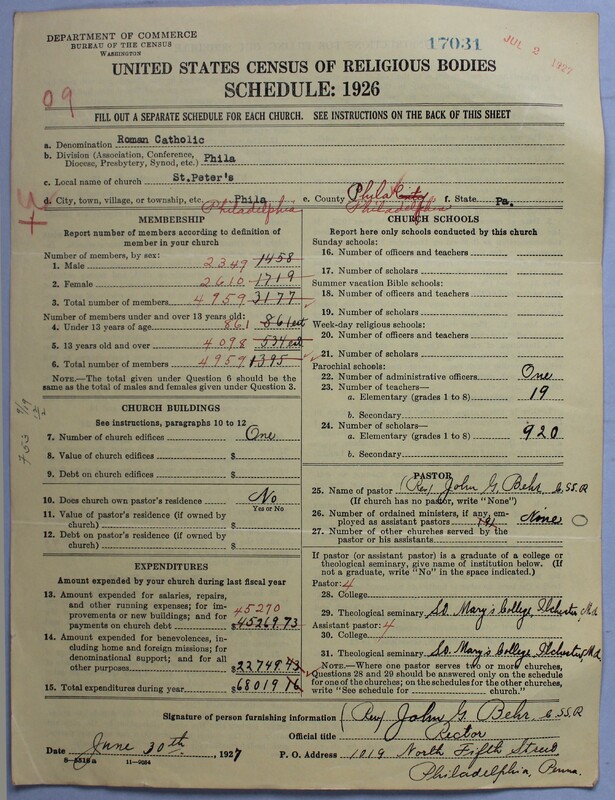 DEPARTMENT OF COMMERCE
BUREAU OF THE CENSUS
WASHINGTON
17031
JUL 2 1927
UNITED STATES CENSUS OF RELIGIOUS BODIES
SCHEDULE: 1926
09
FILL OUT A SEPARATE SCHEDULE FOR EACH CHURCH. SEE INSTRUCTIONS ON THE BACK OF THIS SHEET
a. Denomination Roman Catholic
b. Division (Association, Conference, Diocese, Presbytery, Synod, etc.) Phila
c. Local name of church St.Peter's
d. City, town, village, or township, etc. Phila e. County Phila f. State Pa.
Philadelphia Philadelphia
MEMBERSHIP
Report number of members according to definition of
member in your church
Number of members, by sex:
1. Male 2349 1458
2. Female 2610 1719
3. Total number of members 4959 3177
Number of members under and over 13 years old:
4. Under 13 years of age 861 861
5. 13 years old and over 4098 534
6. Total number of members 4959 1395
NOTE.—The total given under Question 6 should be the
same as the total of males and females given under Question 3.
CHURCH BUILDINGS
See instructions, paragraphs 10 to 12
7. Number of church edifices One
8. Value of church edifices $
9. Debt on church edifices $
10. Does church own pastor's residence No
Yes or No
11. Value of pastor's residence (if owned by
church) $
12. Debt on pastor's residence (if owned by
church) $
EXPENDITURES
Amount expended by your church during last fiscal year
13. Amount expended for salaries, repairs,
and other running expenses; for im-
provements or new buildings; and for
payments on church debt 45270 $45269.73
14. Amount expended for benevolences,
including home and foreign missions; for
denominational support; and for all
other purposes $22749.43
15. Total expenditures during year $68019 16
CHURCH SCHOOLS
Report here only schools conducted by this church
Sunday schools:
16. Number of officers and teachers
17. Number of scholars
Summer vacation Bible schools:
18. Number of officers and teachers
19. Number of scholars
Week-day religious schools:
20. Number of officers and teachers
21. Number of scholars
Parochial schools:
22. Number of administrative officers One
23. Number of teachers—
a. Elementary (grades 1 to 8) 19
b. Secondary
24. Number of scholars—
a. Elementary (grades 1 to 8) 920
b. Secondary
PASTOR
25. Name of pastor (Rev) John G. Behr C.SS.R
(If church has no pastor, write "None")
26. Number of ordained ministers, if any, em-
ployed as assistant pastors None
27. Number of other churches served by the
pastor or his assistants
If pastor (or assistant pastor) is a graduate of a college or
theological seminary, give name of institution below. (If
not a graduate, write "No" in the space indicated.)
Pastor: 4
28. College
29. Theological seminary St. Mary's College, Ilchester, Md.
Assistant pastor: 4
30. College
31. Theological seminary St. Mary's College, Ilchester, Md.
NOTE.—Where one pastor serves two or more churches,
Questions 28 and 29 should be answered only on the schedule
for one of the churches; on the schedules for the other churches,
write "See schedule for church."
Signature of person furnishing information (Rev) John G. Behr C.SS.R
Official title Rector
Date June 30th, 1927 P. O. Address 1019 North Fifth Street
6-5518a 11-9064 Philadelphia, Penna.